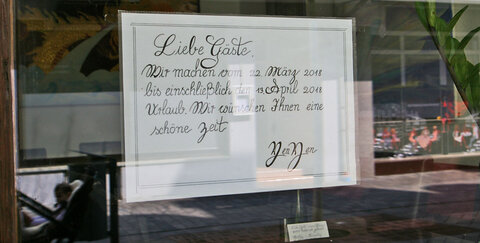 Liebe Gäste,
Wir machen vom 22. März 2018
bis einschließlich den 13. April 2018
Urlaub. Wir wünschen Ihnen eine
schöne Zeit
YenYen